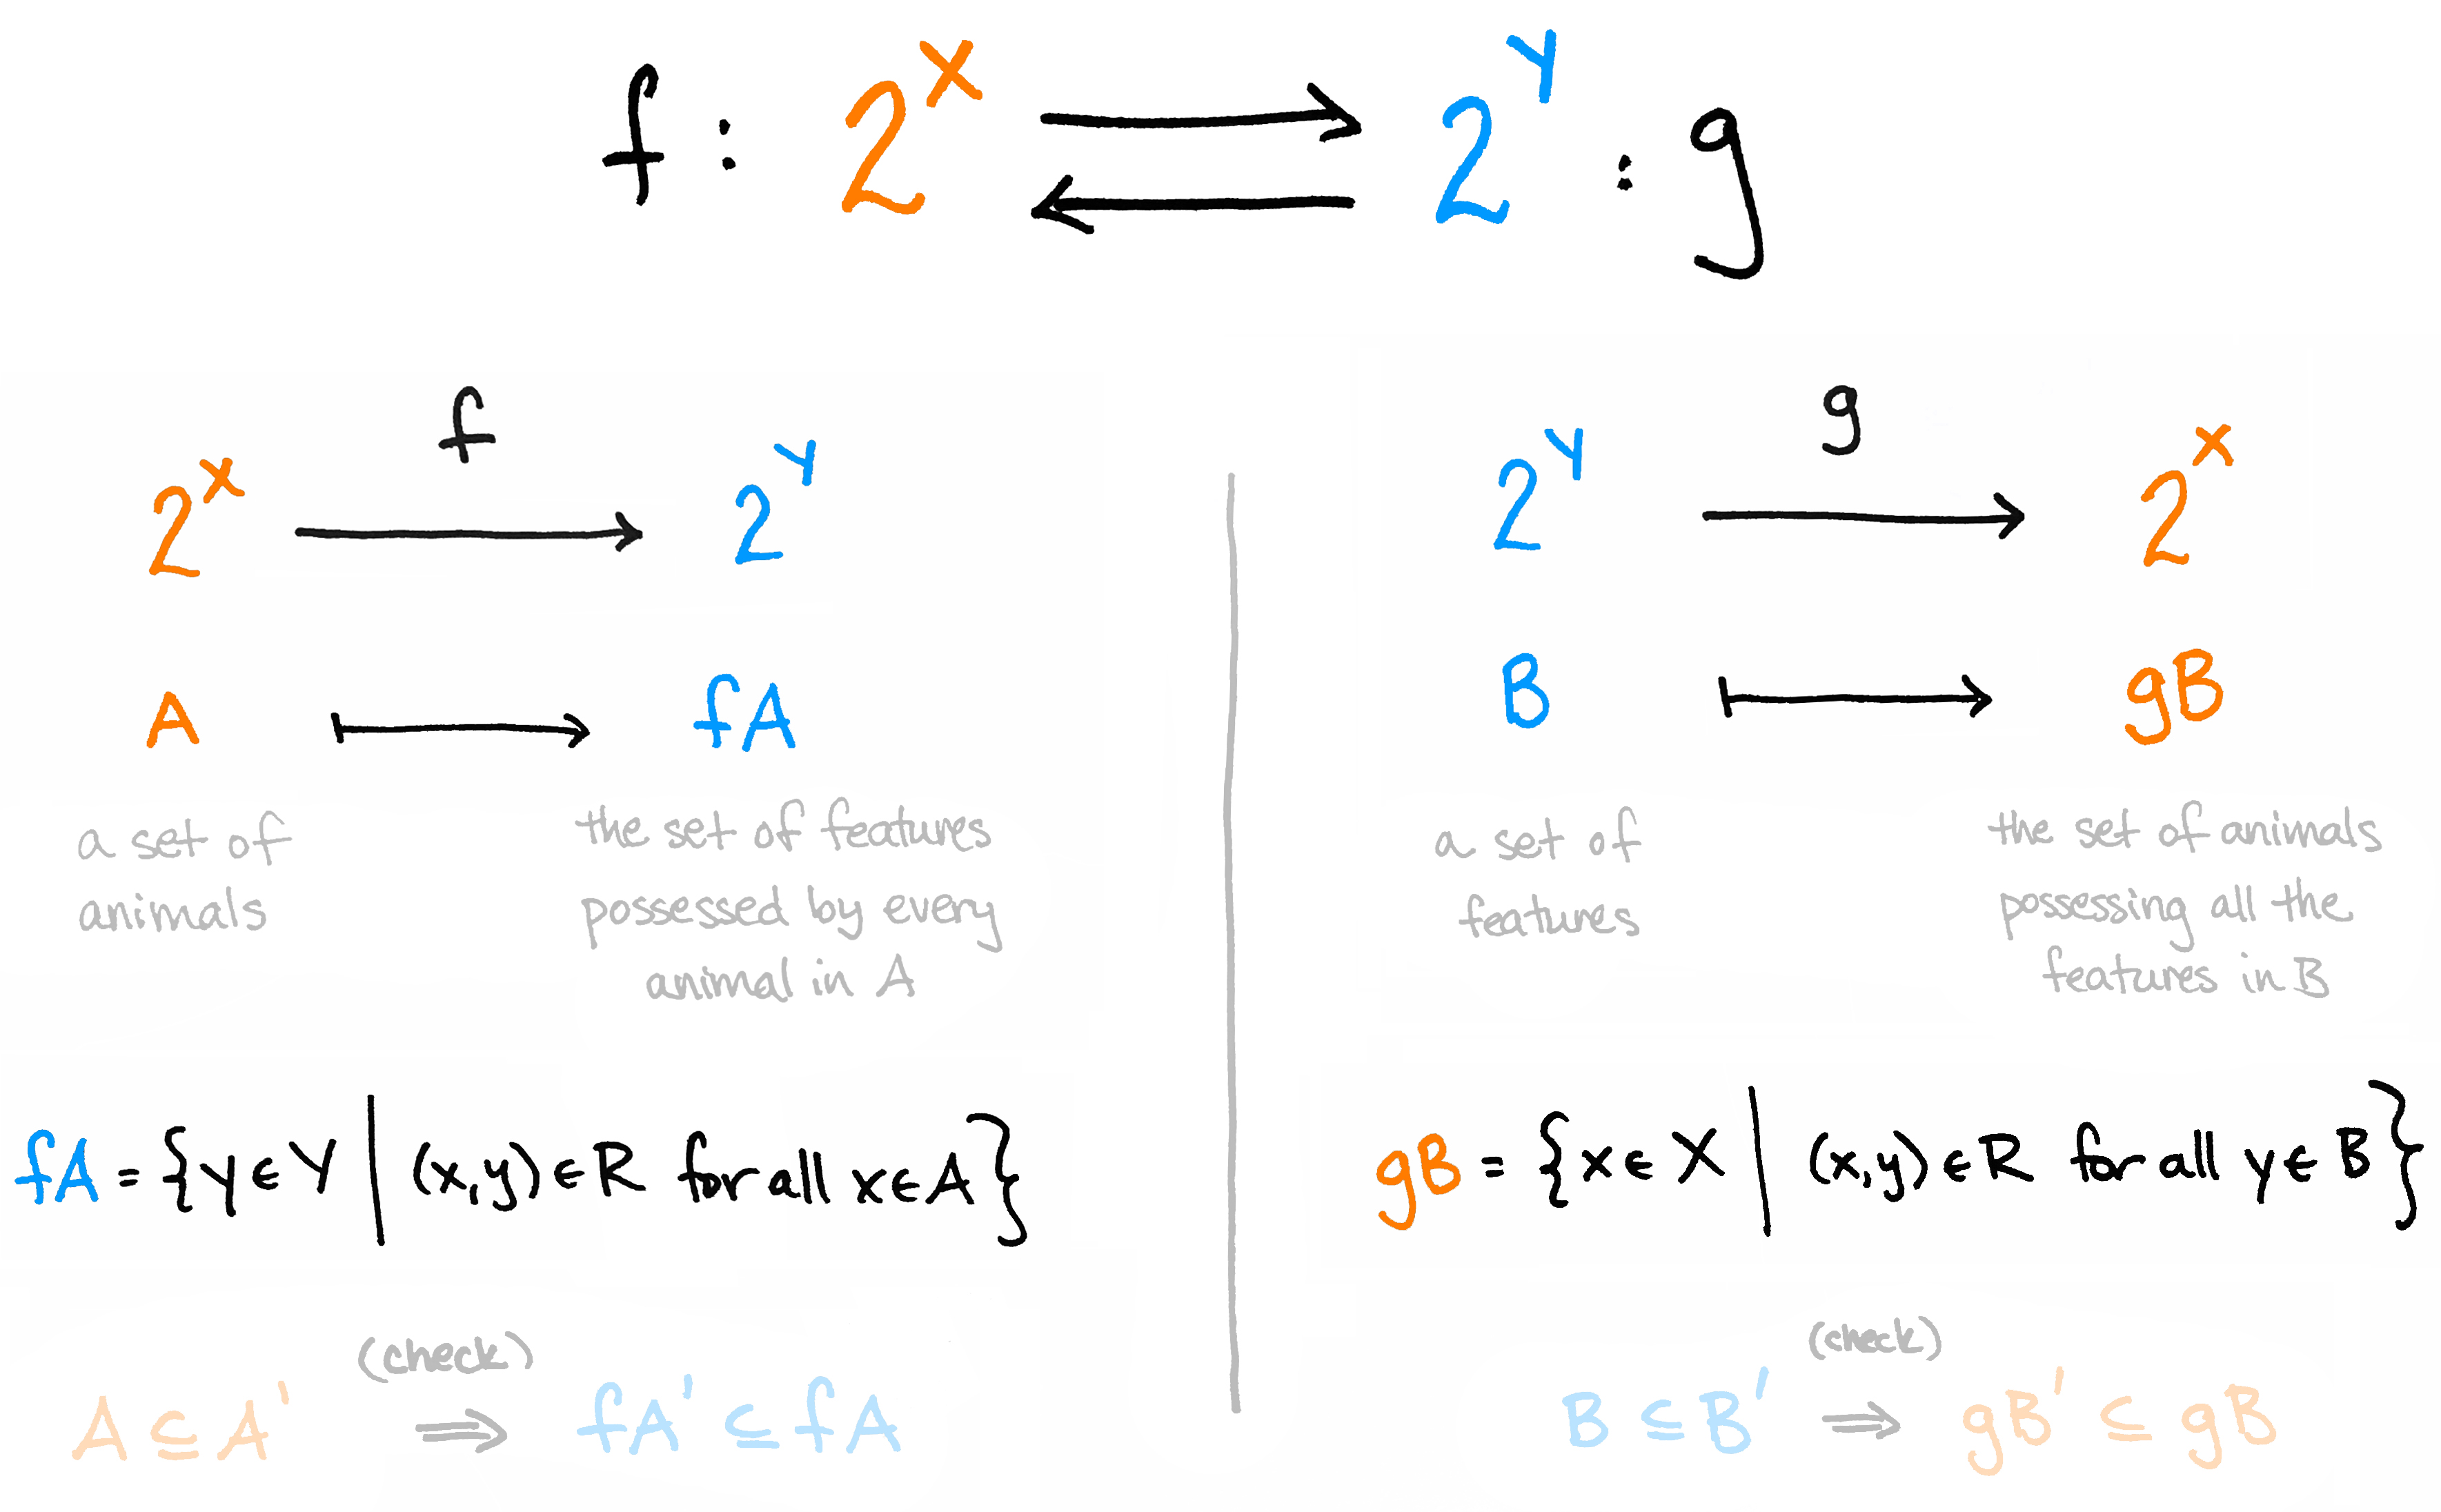 f : 2^X ⇄ 2^Y : g
f
2^X ⟶ 2^Y
A ⟼ fA
a set of
animals
the set of features
possessed by every
animal in A
fA = {y ∈ Y | (x,y) ∈ R for all x ∈ A}
(check)
A ⊆ A' ⟹ fA' ⊆ fA
g
2^Y ⟶ 2^X
B ⟼ gB
a set of
features
the set of animals
possessing all the
features in B
gB = {x ∈ X | (x,y) ∈ R for all y ∈ B}
(check)
B ⊆ B' ⟹ gB' ⊆ gB